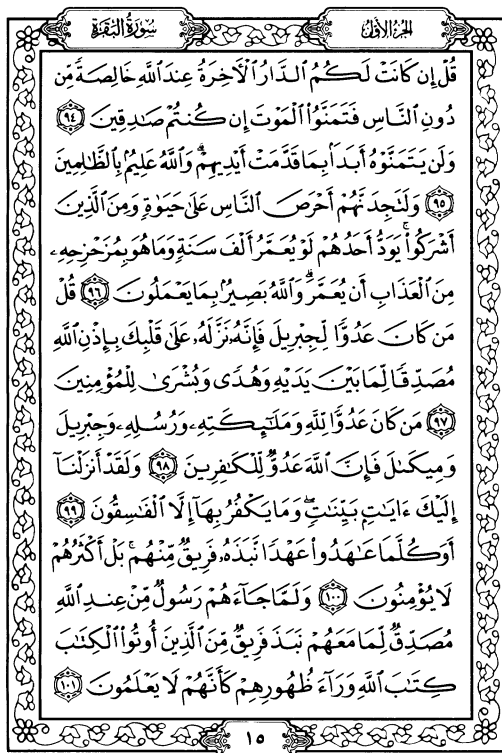 سُورَةُ البَقَرَةِ
الجُزءُ الأَوَّلُ
قُلْ إِن كَانَتْ لَكُمُ الدَّارُ الْآخِرَةُ عِندَ اللَّهِ خَالِصَةً مِّن
دُونِ النَّاسِ فَتَمَنَّوُا الْمَوْتَ إِن كُنتُمْ صَادِقِينَ ٩٤
وَلَن يَتَمَنَّوْهُ أَبَدًا بِمَا قَدَّمَتْ أَيْدِيهِمْ ۗ وَاللَّهُ عَلِيمٌ بِالظَّالِمِينَ
٩٥ وَلَتَجِدَنَّهُمْ أَحْرَصَ النَّاسِ عَلَىٰ حَيَوٰةٍ وَمِنَ الَّذِينَ
أَشْرَكُوا ۚ يَوَدُّ أَحَدُهُمْ لَوْ يُعَمَّرُ أَلْفَ سَنَةٍ وَمَا هُوَ بِمُزَحْزِحِهِۦ
مِنَ الْعَذَابِ أَن يُعَمَّرَ ۗ وَاللَّهُ بَصِيرٌ بِمَا يَعْمَلُونَ ٩٦ قُلْ
مَن كَانَ عَدُوًّا لِّجِبْرِيلَ فَإِنَّهُۥ نَزَّلَهُۥ عَلَىٰ قَلْبِكَ بِإِذْنِ اللَّهِ
مُصَدِّقًا لِّمَا بَيْنَ يَدَيْهِ وَهُدًى وَبُشْرَىٰ لِلْمُؤْمِنِينَ
٩٧ مَن كَانَ عَدُوًّا لِّلَّهِ وَمَلَـٰٓئِكَتِهِۦ وَرُسُلِهِۦ وَجِبْرِيلَ
وَمِيكَىٰلَ فَإِنَّ اللَّهَ عَدُوٌّ لِّلْكَافِرِينَ ٩٨ وَلَقَدْ أَنزَلْنَآ
إِلَيْكَ ءَايَـٰتٍۭ بَيِّنَـٰتٍ ۖ وَمَا يَكْفُرُ بِهَآ إِلَّا الْفَاسِقُونَ ٩٩
أَوَكُلَّمَا عَـٰهَدُوا عَهْدًا نَّبَذَهُۥ فَرِيقٌ مِّنْهُم ۚ بَلْ أَكْثَرُهُمْ
لَا يُؤْمِنُونَ ١٠٠ وَلَمَّا جَآءَهُمْ رَسُولٌ مِّنْ عِندِ اللَّهِ
مُصَدِّقٌ لِّمَا مَعَهُمْ نَبَذَ فَرِيقٌ مِّنَ الَّذِينَ أُوتُوا الْكِتَـٰبَ
كِتَـٰبَ اللَّهِ وَرَآءَ ظُهُورِهِمْ كَأَنَّهُمْ لَا يَعْلَمُونَ ١٠١
١٥